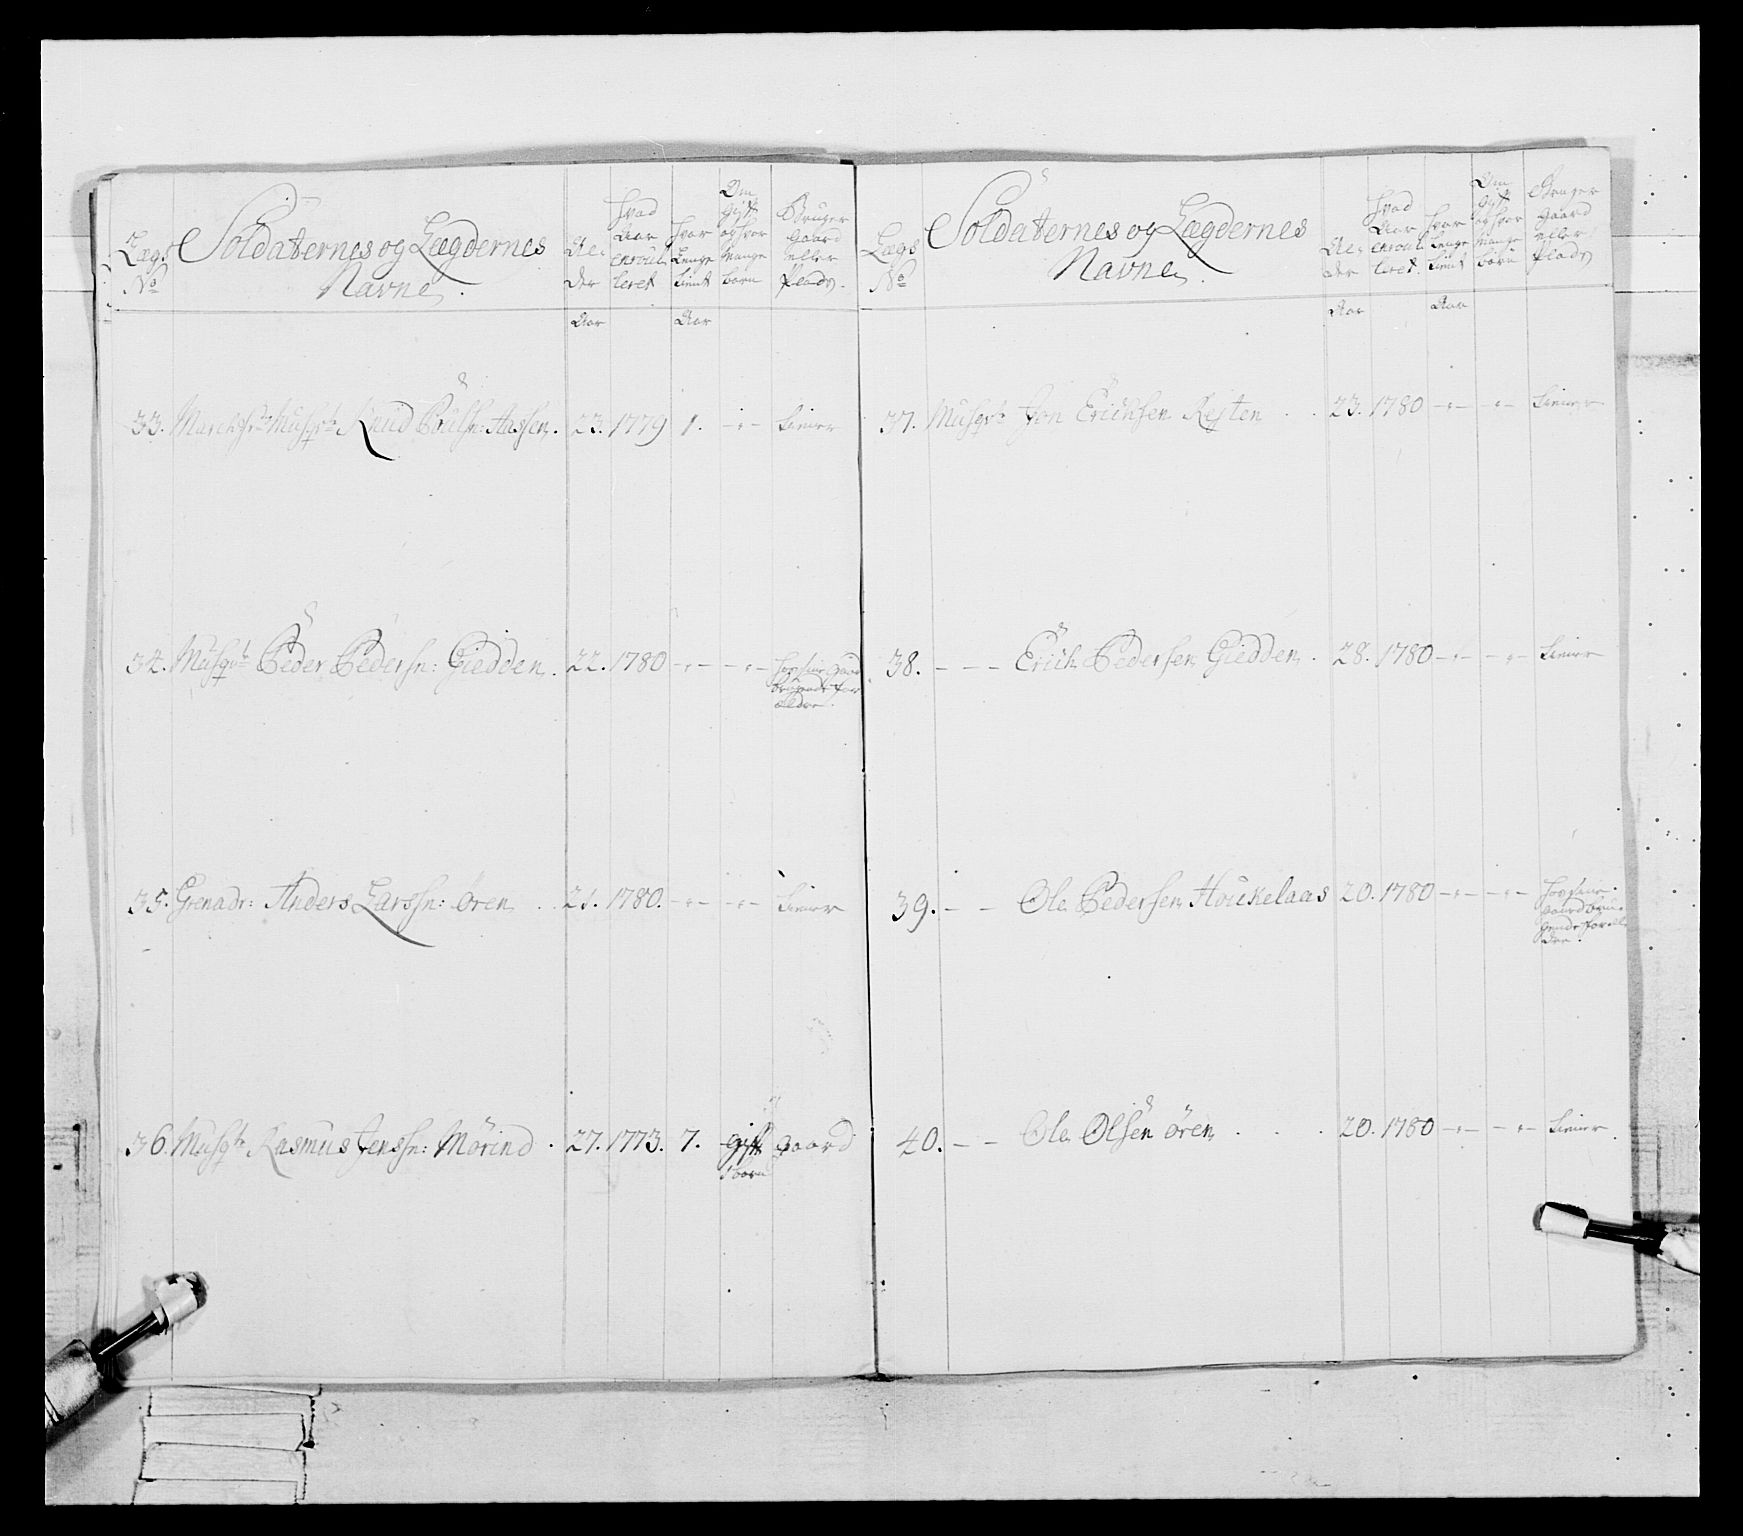 Lægs
No
Soldaternes og Lægdernes
Navne
Al-
der
hvad
Aar
enroul
leret
hvor
Lenge
tient
Om
gift
og hvor
mange
børn
Bruger
gaard
eller
Plads.
Aar
Aar
33. Musqt: Knud Poulsn: Aassen. 23. 1779 1. -"- tiener
34. Musqt: Peder Pedersn: Giedden. 22. 1780 -"- -"- hos sine gaard
brugende for
ældre.
35. Grenadr: Anders Larssn: Ören. 21. 1780. -"- -"- tiener
36. Musqt: Rasmus Jenssn: Mörind. 27. 1773. 7. gift gaard
1 barn
Lægs
No
Soldaternes og Lægdernes
Navne
Al-
der
hvad
Aar
enroul
leret.
hvor
Lenge
tient
Om
gift
og hvor
mange
børn
Bruger
gaard
eller
Plads
Aar
Aar
37. Musqt: Jon Erichsen Resten . . 23. 1780 -"- -"- tiener
38. - - - Erich Pedersen Giedden . 28. 1780 -"- -"- tiener
39. - - Ole Pedersen Houkelaas 20. 1780 -"- -"- hos sine
gaard bru-
gende foræl
dre.
40. - - Ole Olsen ören . . . 20. 1780 -"- -"- tiener